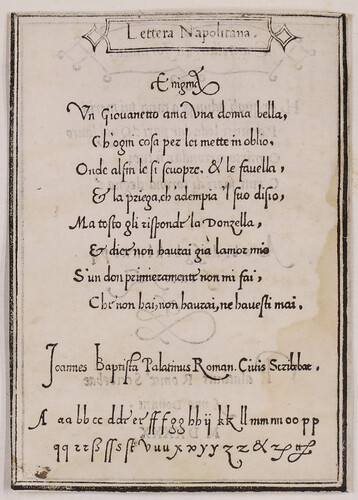 Lettera Napolitana.
Enigma
Vn Giouanetto ama Vna donna bella,
Ch'ogni cosa per lei mette in oblio,
Onde alfin le si scuopre, & le fauella,
& la priega, ch'adempia 'l suo disio,
Ma tosto gli rispondr la Donzella,
& dice non haurai già lamor mio
S'un don primieramente non mi fai,
Che non hai, non haurai, ne hauesti mai.
Joannes Baptista Palatinus Roman. Ciuis Scribebae.
A aa bb cc dd er ff ff gg hh ij kk ll mm nn oo pp
qq rr ß ſſs ſt v uu xx yy z z &